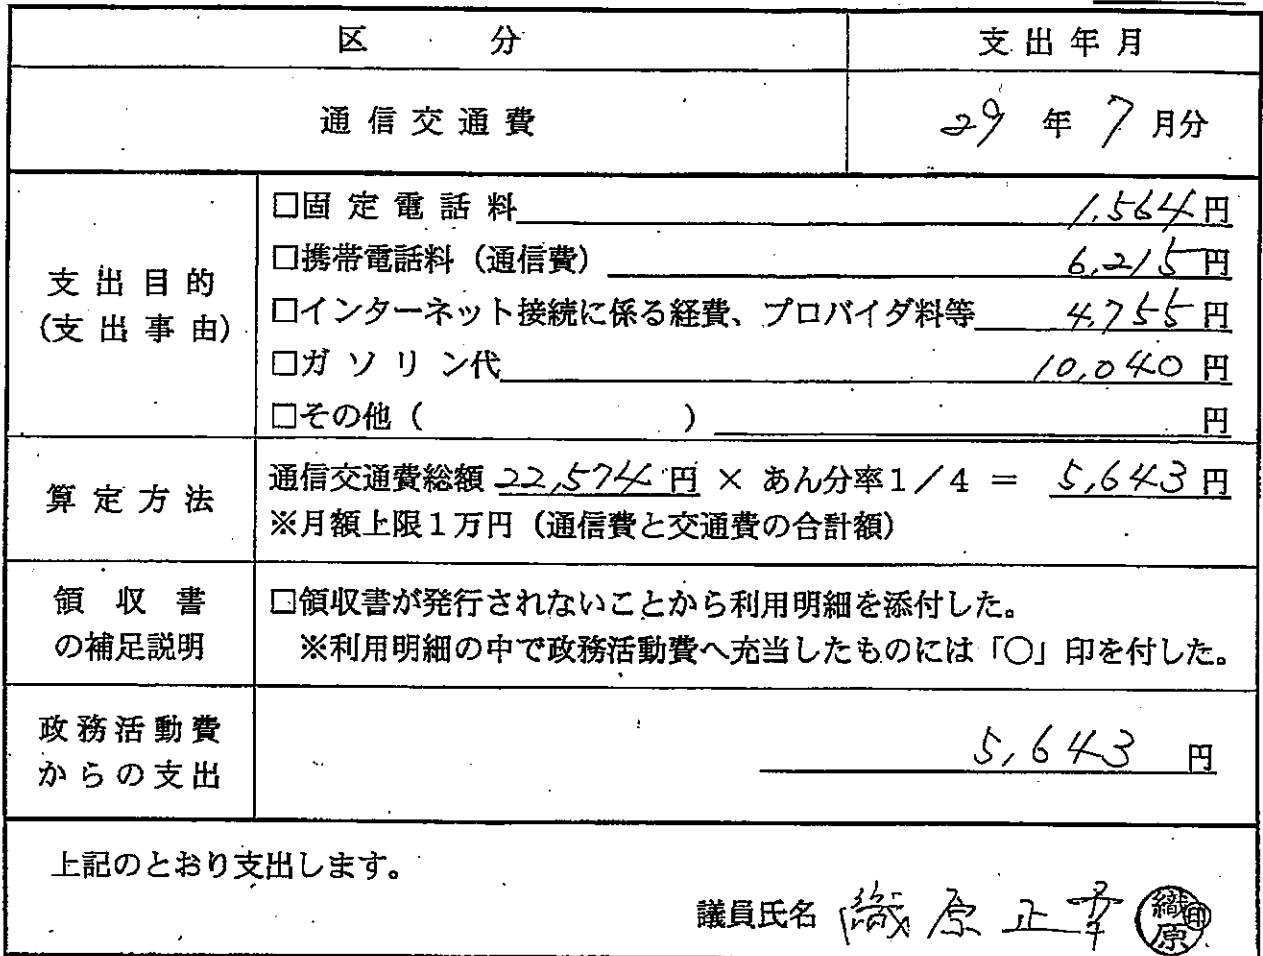 区 分 支出年月
通信交通費 29 年 7 月分
支出目的
(支出事由)
□固定電話料 1,564円
□携帯電話料（通信費） 6,215円
□インターネット接続に係る経費、プロバイダ料等 4,755円
□ガソリン代 10,040円
□その他（ ） 円
算定方法
通信交通費総額 22,574円 × あん分率1／4 ＝ 5,643円
※月額上限1万円（通信費と交通費の合計額）
領収書
の補足説明
□領収書が発行されないことから利用明細を添付した。
※利用明細の中で政務活動費へ充当したものには「○」印を付した。
政務活動費
からの支出
5,643 円
上記のとおり支出します。
議員氏名 織原正幸 織原印